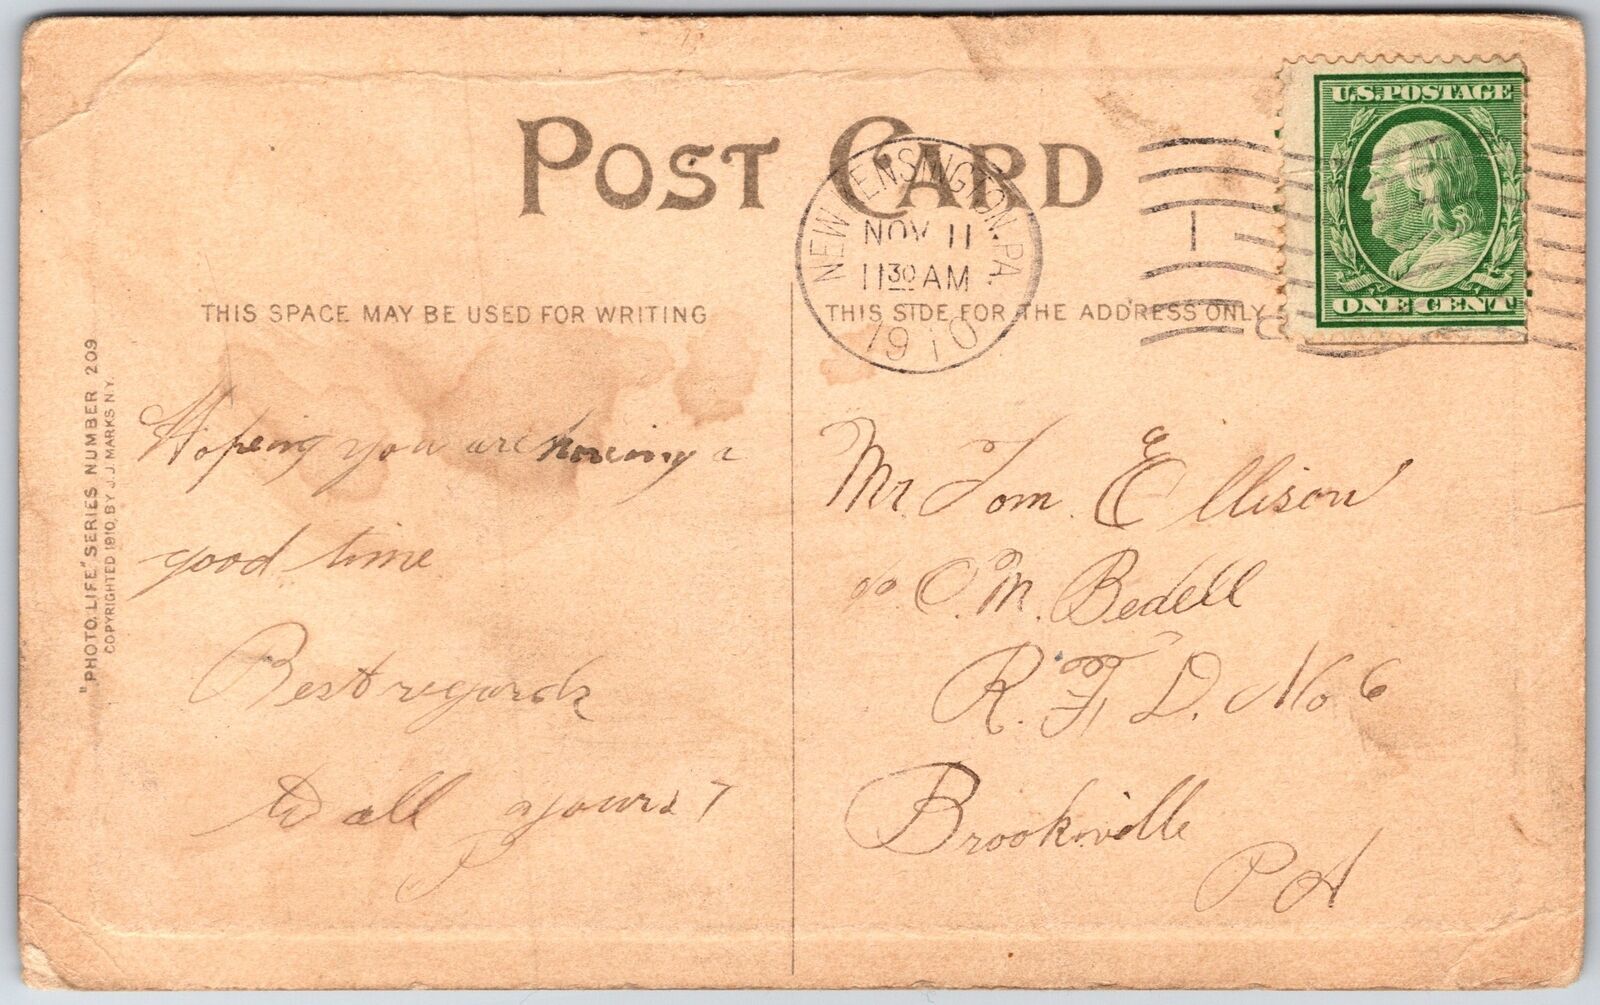 POST CARD
NEW KENSINGTON, PA.
NOV 11
11 30 AM
1910
1
U.S. POSTAGE
ONE CENT
THIS SPACE MAY BE USED FOR WRITING
THIS SIDE FOR THE ADDRESS ONLY
"PHOTO LIFE" SERIES NUMBER 209
COPYRIGHTED 1910, BY J. J. MARKS N.Y.
Hopeing you are haveing a
good time
Best regards
to all yours
Mr. Tom Ellison
c/o O. M. Bedell
R. F. D. No 6
Brookville
PA